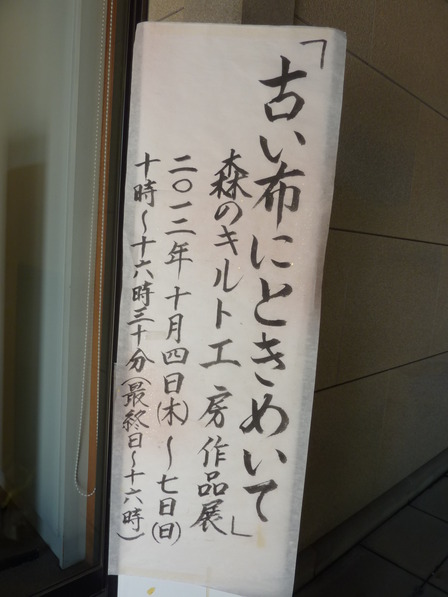 「古い布にときめいて」
森のキルト工房作品展
二〇一二年十月四日(木)～七日(日)
十時～十六時三十分(最終日～十六時)